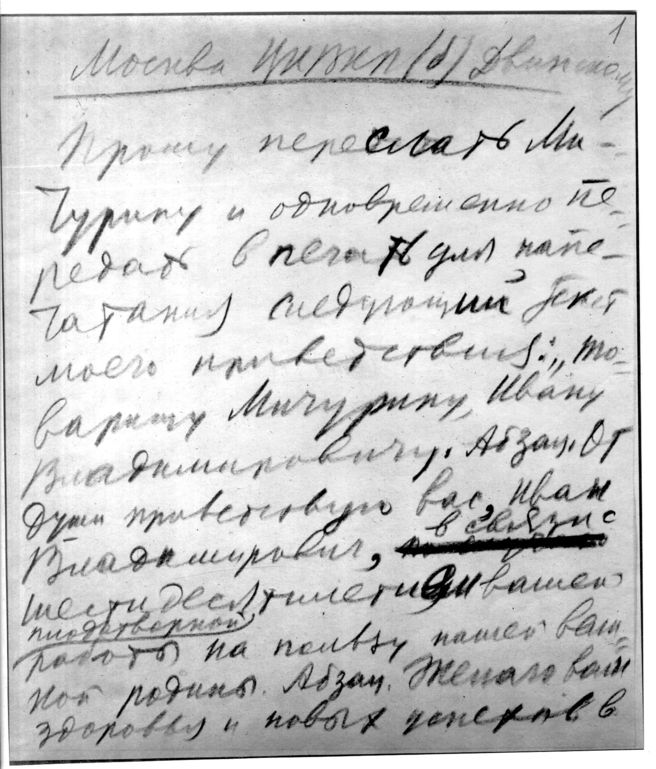 1
Москва ЦКВКП(б) Двинскому
Прошу переслать Ми-
чурину и одновременно пе-
редать в печать для напе-
чатания следующий текст
моего приветствия: „То-
варищу Мичурину, Ивану
Владимировичу. Абзац. От
души приветствую вас, Иван
Владимирович, в связи с
шестидесятилетием вашей
плодотворной
работы на пользу нашей вели-
кой родины. Абзац. Желаю вам
здоровья и новых успехов в